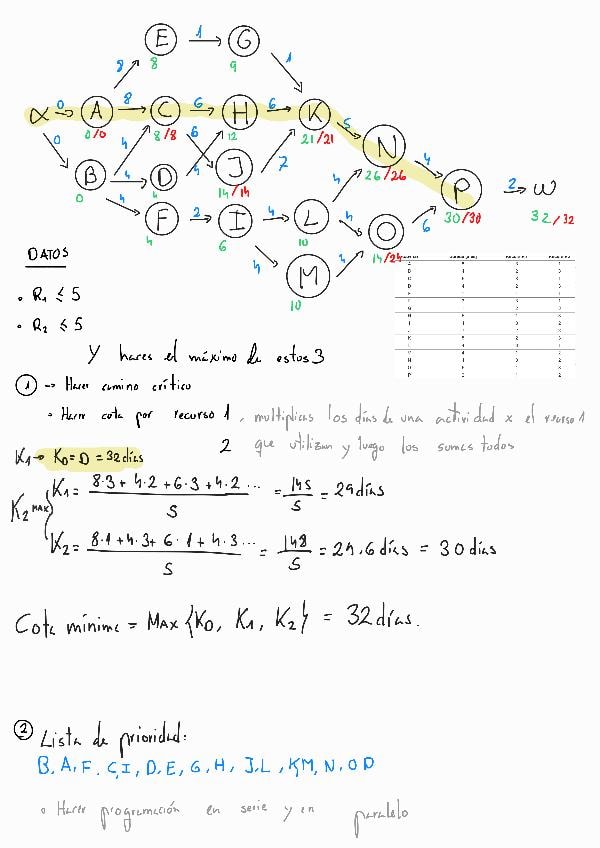 E 1 G
8 8 9 1
α 0 A 8 C 6 H 6 K 5
0/0 8/8 12 21/21 N 4
0 4 6 4 J 7 26/26 P 2 ω
B 4 D 14/14 4 30/30 32/32
0 4 4
F 2 I 4 L 4 O 6
4 6 10 14/24
4 M 4
10
DATOS
• R1 ≤ 5
• R2 ≤ 5
Y haces el máximo de estos 3
① → Hacer camino crítico
• Hacer cota por recurso 1, multiplicas los días de una actividad x el recurso 1
2 que utilizan y luego los sumas todos
K1→ K0 = D = 32 días
K2 MAX { K1 = 8·3 + 4·2 + 6·3 + 4·2 ... / 5 = 145 / 5 = 29 días
K2 = 8·1 + 4·3 + 6·1 + 4·3 ... / 5 = 148 / 5 = 29.6 días = 30 días
Cota mínima = MAX {K0, K1, K2} = 32 días.
② Lista de prioridad:
B, A, F, C, I, D, E, G, H, J, L, K M, N, O P
• Hacer programación en serie y en paralelo